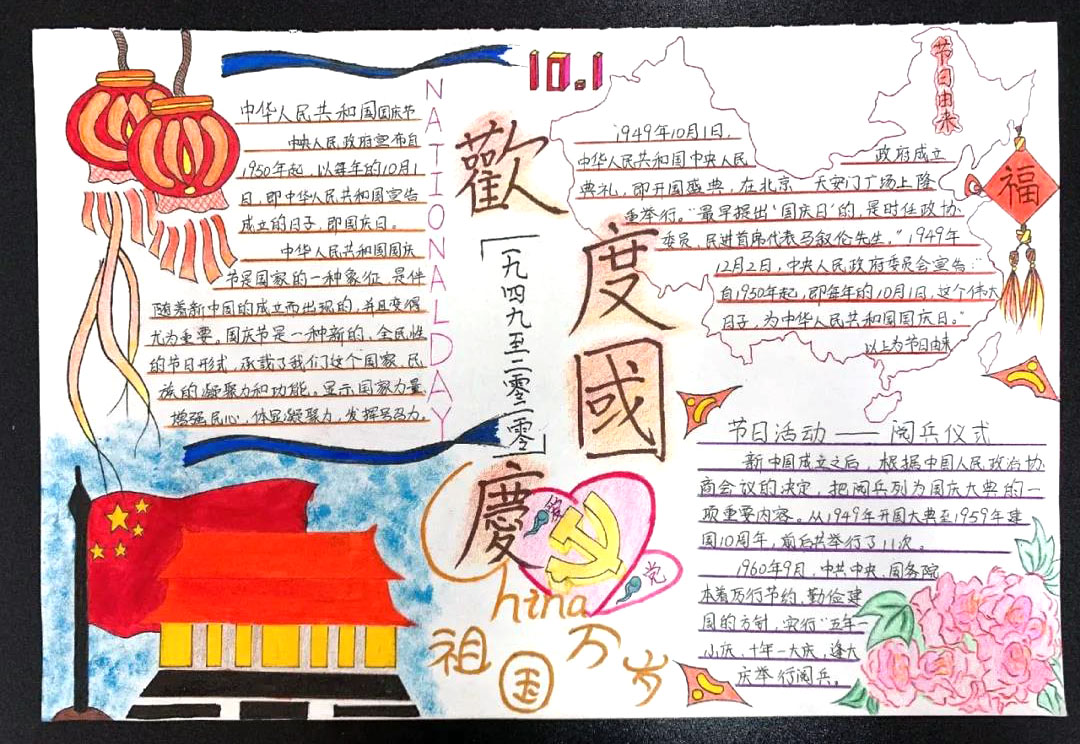 10.1
NATIONAL DAY
歡
度
國
慶
一九四九至二零二零
中华人民共和国国庆节
中央人民政府宣布自
1950年起，以每年的10月1
日，即中华人民共和国宣告
成立的日子，即国庆日。
中华人民共和国国庆
节是国家的一种象征，是伴
随着新中国的成立而出现的，并且变得
尤为重要。国庆节是一种新的、全民性
的节日形式，承载了我们这个国家、民
族的凝聚力和功能。显示国家力量、
增强民心，体显凝聚力，发挥号召力。
节日由来
1949年10月1日，
中华人民共和国中央人民 政府成立
典礼，即开国盛典，在北京 天安门广场上隆
重举行。"最早提出'国庆日'的，是时任政协
委员、民进首席代表马叙伦先生。"1949年
12月2日，中央人民政府委员会宣告："
自1950年起，即每年的10月1日，这个伟大
日子，为中华人民共和国国庆日。"
以上为节日由来
福
节日活动——阅兵仪式
新中国成立之后，根据中国人民政治协
商会议的决定，把阅兵列为国庆大典的一
项重要内容。从1949年开国大典至1959年建
国10周年，前后共举行了11次。
1960年9月，中共中央、国务院
本着厉行节约、勤俭建
国的方针，实行"五年一
小庆，十年一大庆，逢大
庆举行阅兵。
党
China
祖国万岁